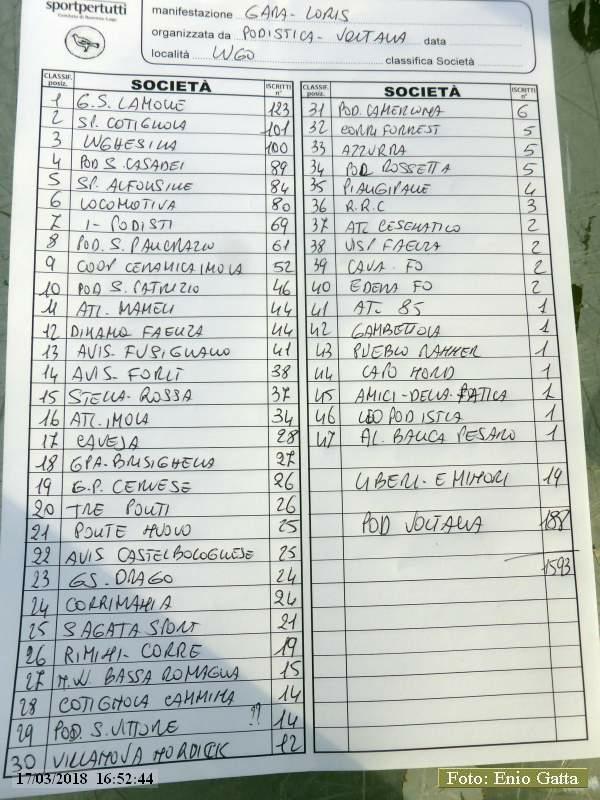 sportpertutti
manifestazione GARA - LORIS
organizzata da PODISTICA - VOLTANA data
località LUGO classifica Società
CLASSIF. posiz. SOCIETÀ ISCRITTI n°
1 G.S. LAMONE 123
2 SP. COTIGNOLA 101
3 LUGHESINA 100
4 POD S. CASADEI 89
5 SP. ALFONSINE 84
6 LOCOMOTIVA 80
7 I - PODISTI 69
8 POD. S. PANCRAZIO 61
9 COOP CERAMICA IMOLA 52
10 POD S. PATRIZIO 46
11 ATL. MAMELI 44
12 DINAMO FAENZA 44
13 AVIS. FUSIGNANO 41
14 AVIS. FORLÌ 38
15 STELLA - ROSSA 37
16 ATL. IMOLA 34
17 CAVEJA 28
18 GPA - BRISIGHELLA 27
19 G.P. CERVESE 26
20 TRE PONTI 26
21 PONTE NUOVO 25
22 AVIS CASTELBOLOGNESE 25
23 GS. DRAGO 24
24 CORRIMANIA 24
25 S AGATA SPORT 21
26 RIMINI - CORRE 19
27 N.W. BASSA ROMAGNA 15
28 COTIGNOLA CAMMINA 14
29 POD. S. VITTORE ?? 14
30 VILLANOVA NORDICK 12
CLASSIF. posiz. SOCIETÀ ISCRITTI n°
31 POD. CAMERLONA 6
32 CORRI FORREST 5
33 AZZURRA 5
34 POD. ROSSETTA 5
35 PIANGIPANE 4
36 R.R.C 3
37 ATL CESENATICO 2
38 UISP FAENZA 2
39 CAVA - FO 2
40 EDERA FO 2
41 ATL. 85 1
42 GAMBETTOLA 1
43 PUEBLO RANNER 1
44 CAPO NORD 1
45 AMICI - DELLA FATICA 1
46 LEOPODISTICA 1
47 AL. BANCA PESARO 1
LIBERI - E MINORI 19
POD VOLTANA 188
1593
17/03/2018 16:52:44
Foto: Enio Gatta